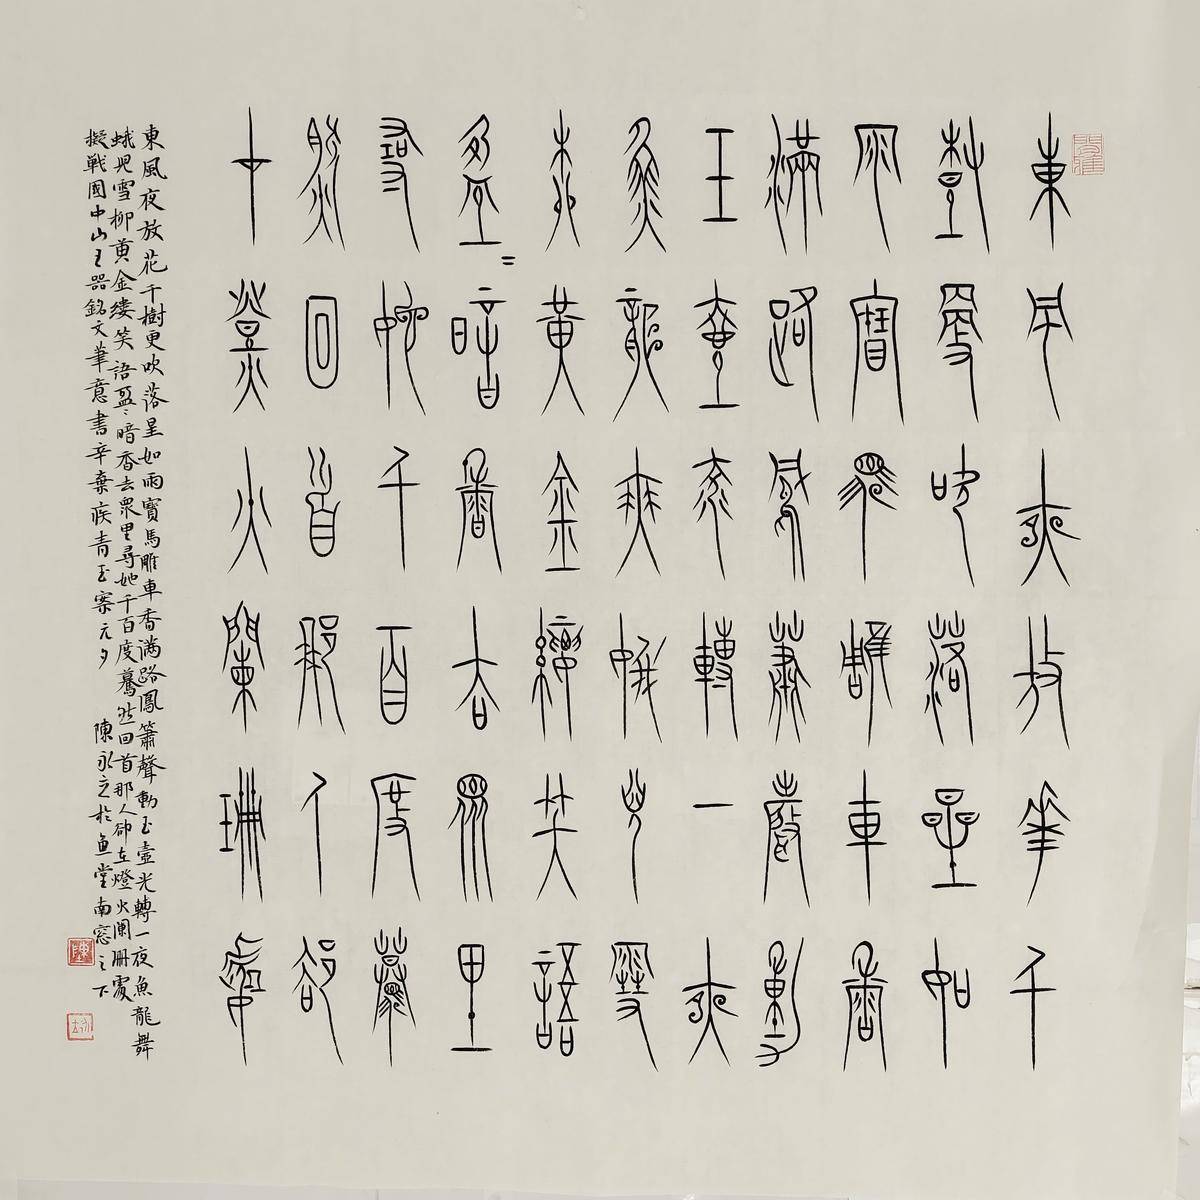 東風夜放花千
樹更吹落星如
雨寶馬雕車香
滿路鳳簫聲動
玉壺光轉一夜
魚龍舞蛾兒雪
柳黃金縷笑語
盈=暗香去眾里
尋她千百度驀
然回首那人卻
在燈火闌珊處
東風夜放花千樹更吹落星如雨寶馬雕車香滿路鳳簫聲動玉壺光轉一夜魚龍舞
蛾兒雪柳黃金縷笑語盈〻暗香去眾里尋她千百度驀然回首那人卻在燈火闌珊處
擬戰國中山王器銘文筆意書辛棄疾青玉案元夕 陳永立於魚堂南窓之下
陳